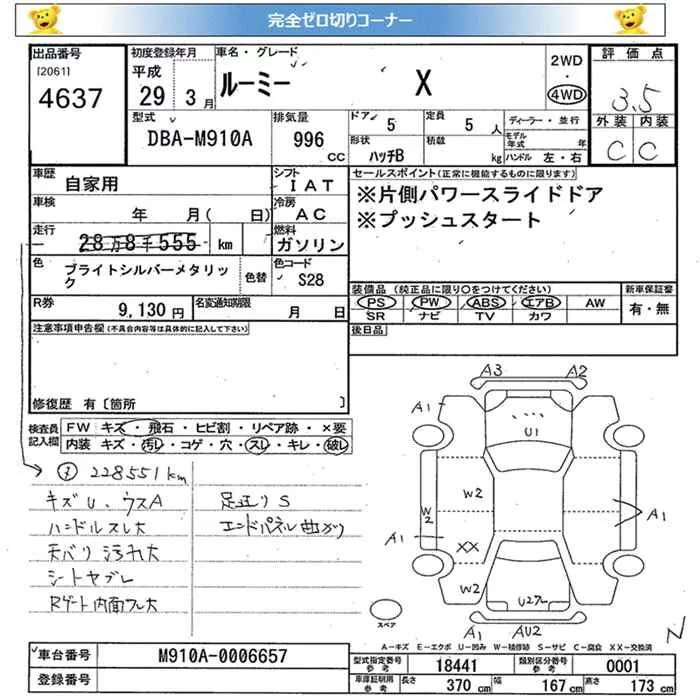 完全ゼロ切りコーナー
出品番号 初度登録年月 車名・グレード 2WD 評価点
[2061] 平成 ルーミー X ・
4637 29 3月 4WD 3.5
型式 排気量 ドア 5 定員 5人 ディーラー・並行 外装 内装
DBA-M910A 996 CC 形状 ハッチB 積載 kg モデル年式 年 C C
ハンドル 左・右
車歴 自家用 シフト IAT セールスポイント(正常に機能するものに限ります)
車検 年 月( 日) 冷房 AC ※片側パワースライドドア
走行 28万8千555 km 燃料 ガソリン ※プッシュスタート
色 ブライトシルバーメタリック 色替 色コード S28
装備品(純正品に限り○をつけてください) 新車保証書
R券 9,130円 名変通知期限 月 日 PS PW ABS エアB AW 有・無
SR ナビ TV カワ
注意事項申告欄(不具合内容等は具体的に記入して下さい) 後日品
修復歴 有〔箇所 〕
検査員記入欄 FW キズ・飛石・ヒビ割・リペア跡・×要
内装 キズ・汚レ・コゲ・穴・スレ・キレ・破レ
228551km
キズU、ウスA 足廻りS
ハンドルスレ大 エンドパネル曲がり
天バリ汚れ大
シートヤブレ
Rゲート内面フレ大
A3 A2
A1 A1
U1
W2 W2 A1
A1 XX
W2
スペア A1 AU2 N
A-キズ E-エクボ U-凹み W-補修跡 S-サビ C-腐食 XX-交換済
車台番号 M910A-0006657 型式指定番号 参考 18441 類別区分番号 参考 0001
登録番号 車庫証明用 参考 長さ 370 cm 幅 167 cm 高さ 173 cm